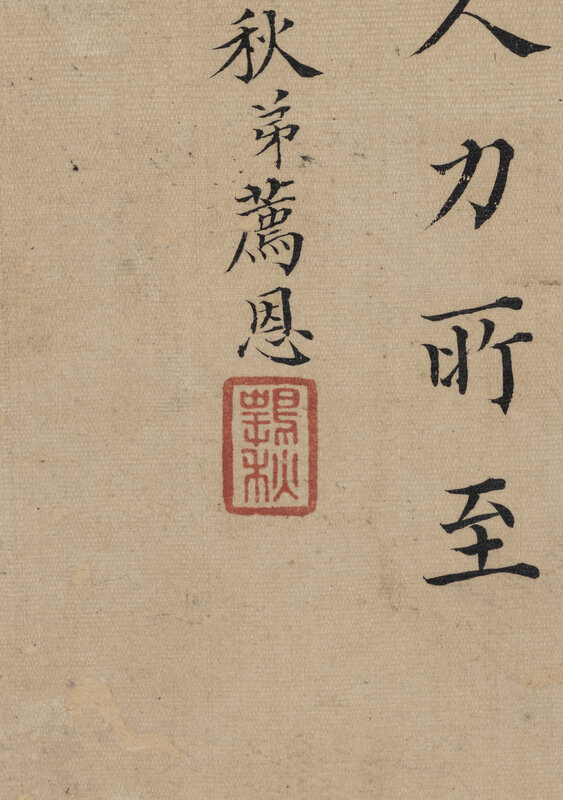 人力所至
秋弟薦恩
鶚秋